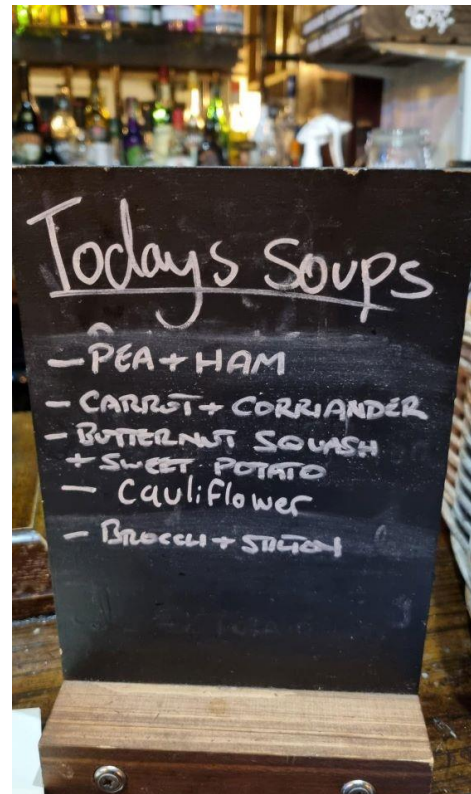 Todays Soups
- PEA + HAM
- CARROT + CORRIANDER
- BUTTERNUT SQUASH
+ SWEET POTATO
- Cauliflower
- BROCCLI + STILTON